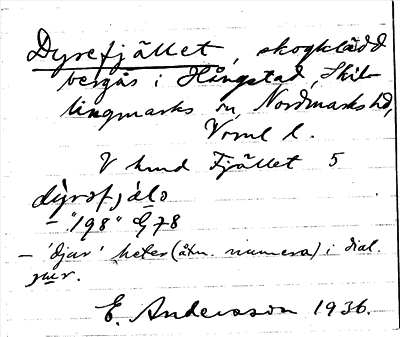 Dyrefjället, skogklädd
bergås i Hångstad, Skil-
lingmarks sn, Nordmarks hd,
Vrml l.
V hmd Fjället 5
dyrofjälo
- "198" G78
- 'djur' heter (åtm. numera) i dial.
jur.
E. Andersson 1936.